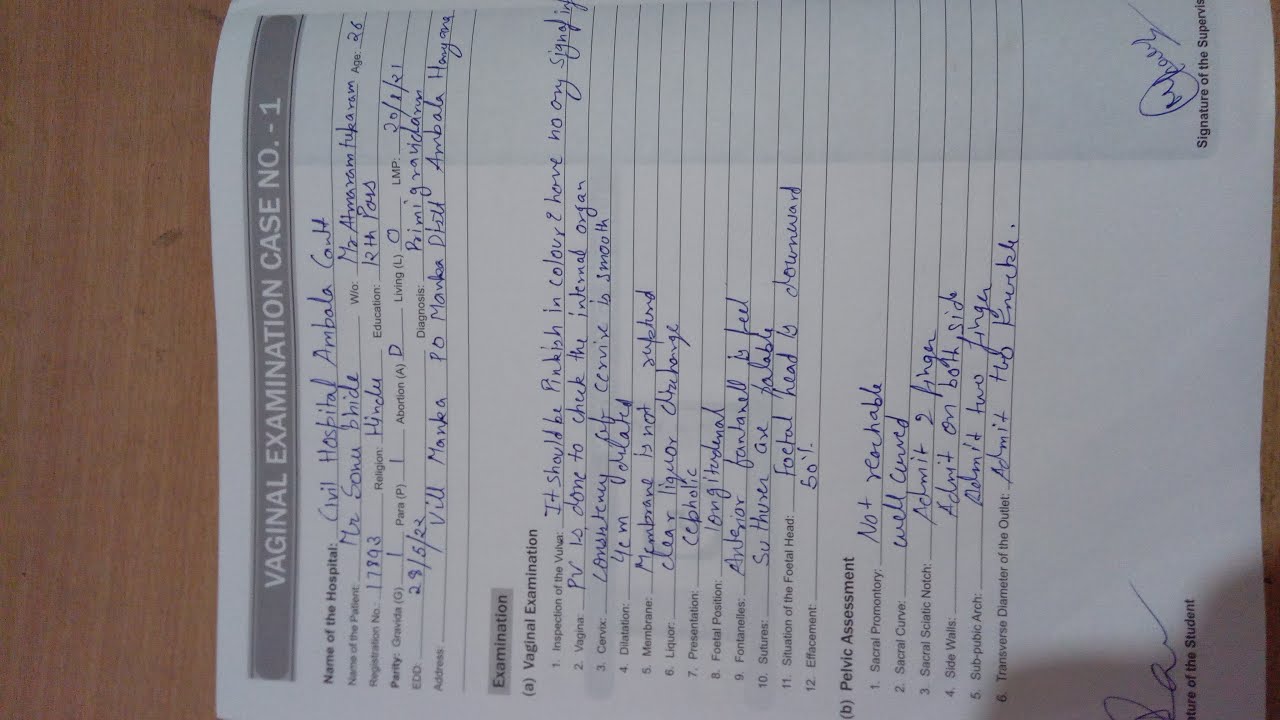 VAGINAL EXAMINATION CASE NO. - 1
Name of the Hospital: Civil Hospital Ambala Cantt
Name of the Patient: Mr Sonu bhide W/o: Mr Atmaram tukaram Age: 26
Registration No.: 17893 Religion: Hindu Education: 12th Pass
Parity: Gravida (G) 1 Para (P) 1 Abortion (A) D Living (L) 0 LMP: 20/8/21
EDD: 28/5/22 Diagnosis: Primigravidarum
Address: Vill Manka PO Manka Ambala Haryana
Examination
(a) Vaginal Examination
1. Inspection of the Vulva: It should be Pinkish in colour & have no any sign of
2. Vagina: PV is done to check the internal organ
3. Cervix: Consistency of cervix is smooth
4. Dilatation: 4cm dilated
5. Membrane: Membrane is not rupturd
6. Liquor: clear liquor discharge
7. Presentation: cepholic
8. Foetal Position: longitudenal
9. Fontanelles: Anterior fantanell is feel
10. Sutures: Suthures are palable
11. Situation of the Foetal Head: Foetal head is downward
12. Effacement: 50%.
(b) Pelvic Assessment
1. Sacral Promontory: Not reachable
2. Sacral Curve: well curved
3. Sacral Sciatic Notch: Admit 2 finger
4. Side Walls: Admit on both side
5. Sub-pubic Arch: Admit two finger
6. Transverse Diameter of the Outlet: Admit two knuckle.
ture of the Student
Signature of the Supervis